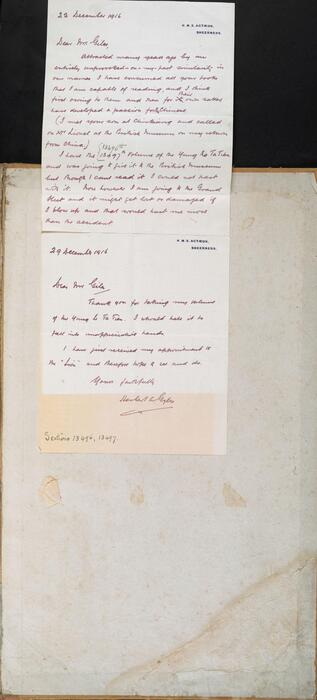 22 December 1916
H.M.S. ACTÆON,
SHEERNESS.
Dear Mr. Giles,
Attracted many years ago by an
entirely unprovoked-on-my-part similarity in
our names I have consumed all your books
that I am capable of reading, and I think
first owing to them and then for their own sakes
have developed a passive
(I met your son at and called
on Mr Lionel at the British Museum on my return
from China)
I have the (13496th 13497th volume of the Yung Lo Ta Tien
and was going to give it to the British Museum
but though I can't read it I could not part
with it. Now however I am going to the Grand
Fleet and it might get lost or damaged if
I blow up and that would hurt me more
than the accident
H.M.S. ACTÆON,
SHEERNESS.
29 December 1916
Dear Mr Giles,
Thank you for taking my volume
of the Yung Lo Ta Tien. I should hate it to
fall into unappreciative hands.
I have just received my appointment to
the "Lion" and therefore hope to see and do.
Yours faithfully
Sections 13496, 13497.